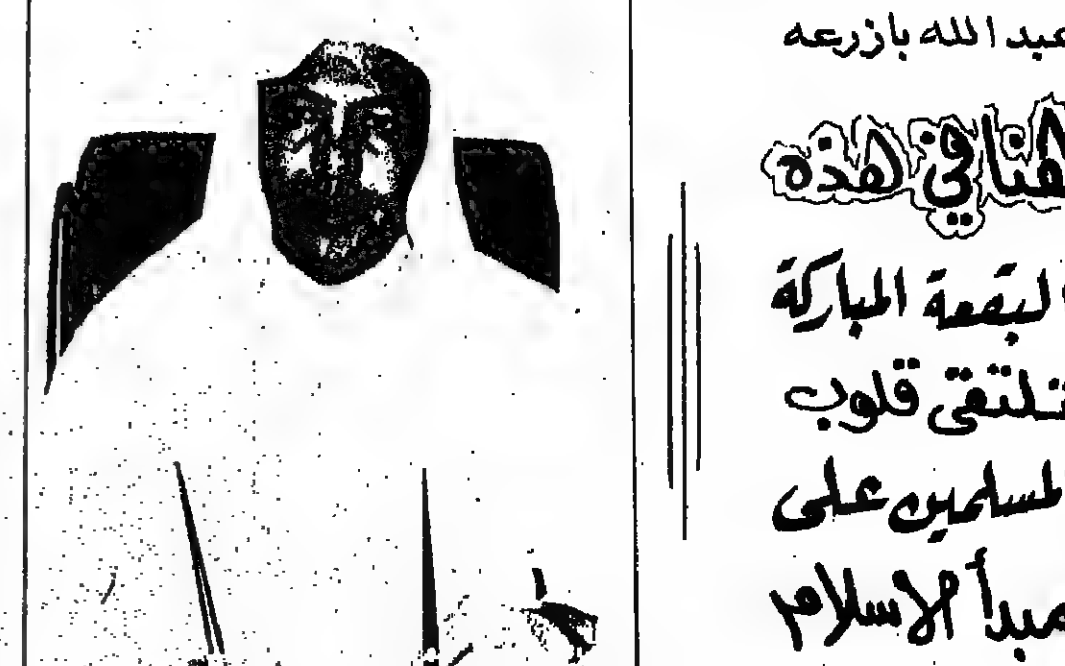 عبد الله بازرعه
هنا في هذه
البقعة المباركة
تلتقي قلوب
المسلمين على
مبدأ الاسلام